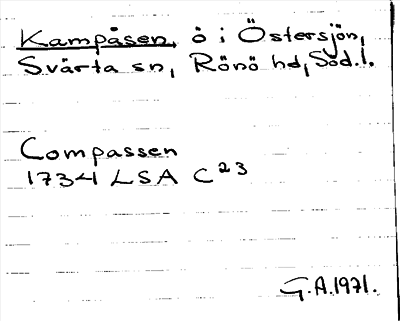 Kampåsen, ö i Östersjön,
Svärta sn, Rönö hd, Söd.l.
Compassen
1734 LSA C23
G.A.1971.